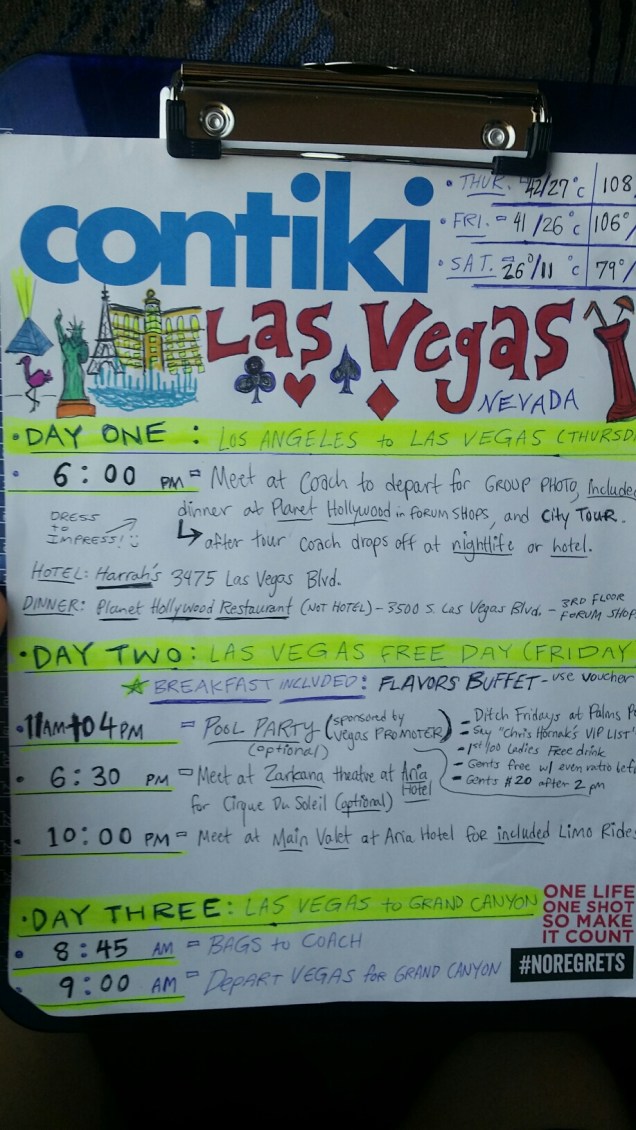 contiki
• THUR. = 42/27°C 108
• FRI. = 41/26°C 106°/
• SAT. = 26°/11°C 79°/
Las Vegas
NEVADA
• DAY ONE : LOS ANGELES to LAS VEGAS (THURSD
• 6:00 PM = Meet at Coach to depart for GROUP PHOTO, Include
dinner at Planet Hollywood in FORUM SHOPS, and CITY TOUR.
DRESS to IMPRESS! :)
↳ after tour coach drops off at nightlife or hotel.
HOTEL: Harrah's 3475 Las Vegas Blvd.
DINNER: Planet Hollywood Restaurant (NOT HOTEL) - 3500 S. Las Vegas Blvd. - 3RD FLOOR FORUM SHOP
• DAY TWO: LAS VEGAS FREE DAY (FRIDAY
☆ BREAKFAST INCLUDED: FLAVORS BUFFET - use voucher
• 11AM to 4PM = POOL PARTY (sponsored by Vegas PROMOTER)
(optional)
- Ditch Fridays at Palms P
- Say "Chris Hornak's VIP LIST"
- 1st 100 Ladies Free drink
- Gents free w/ even ratio
- Gents $20 after 2 pm
• 6:30 PM = Meet at Zarkana theatre at Aria Hotel
for Cirque Du Soleil (optional)
• 10:00 PM = Meet at Main Valet at Aria Hotel for included Limo Rides
• DAY THREE: LAS VEGAS to GRAND CANYON
• 8:45 AM = BAGS to COACH
• 9:00 AM = DEPART VEGAS for GRAND CANYON
ONE LIFE
ONE SHOT
SO MAKE
IT COUNT
#NOREGRETS